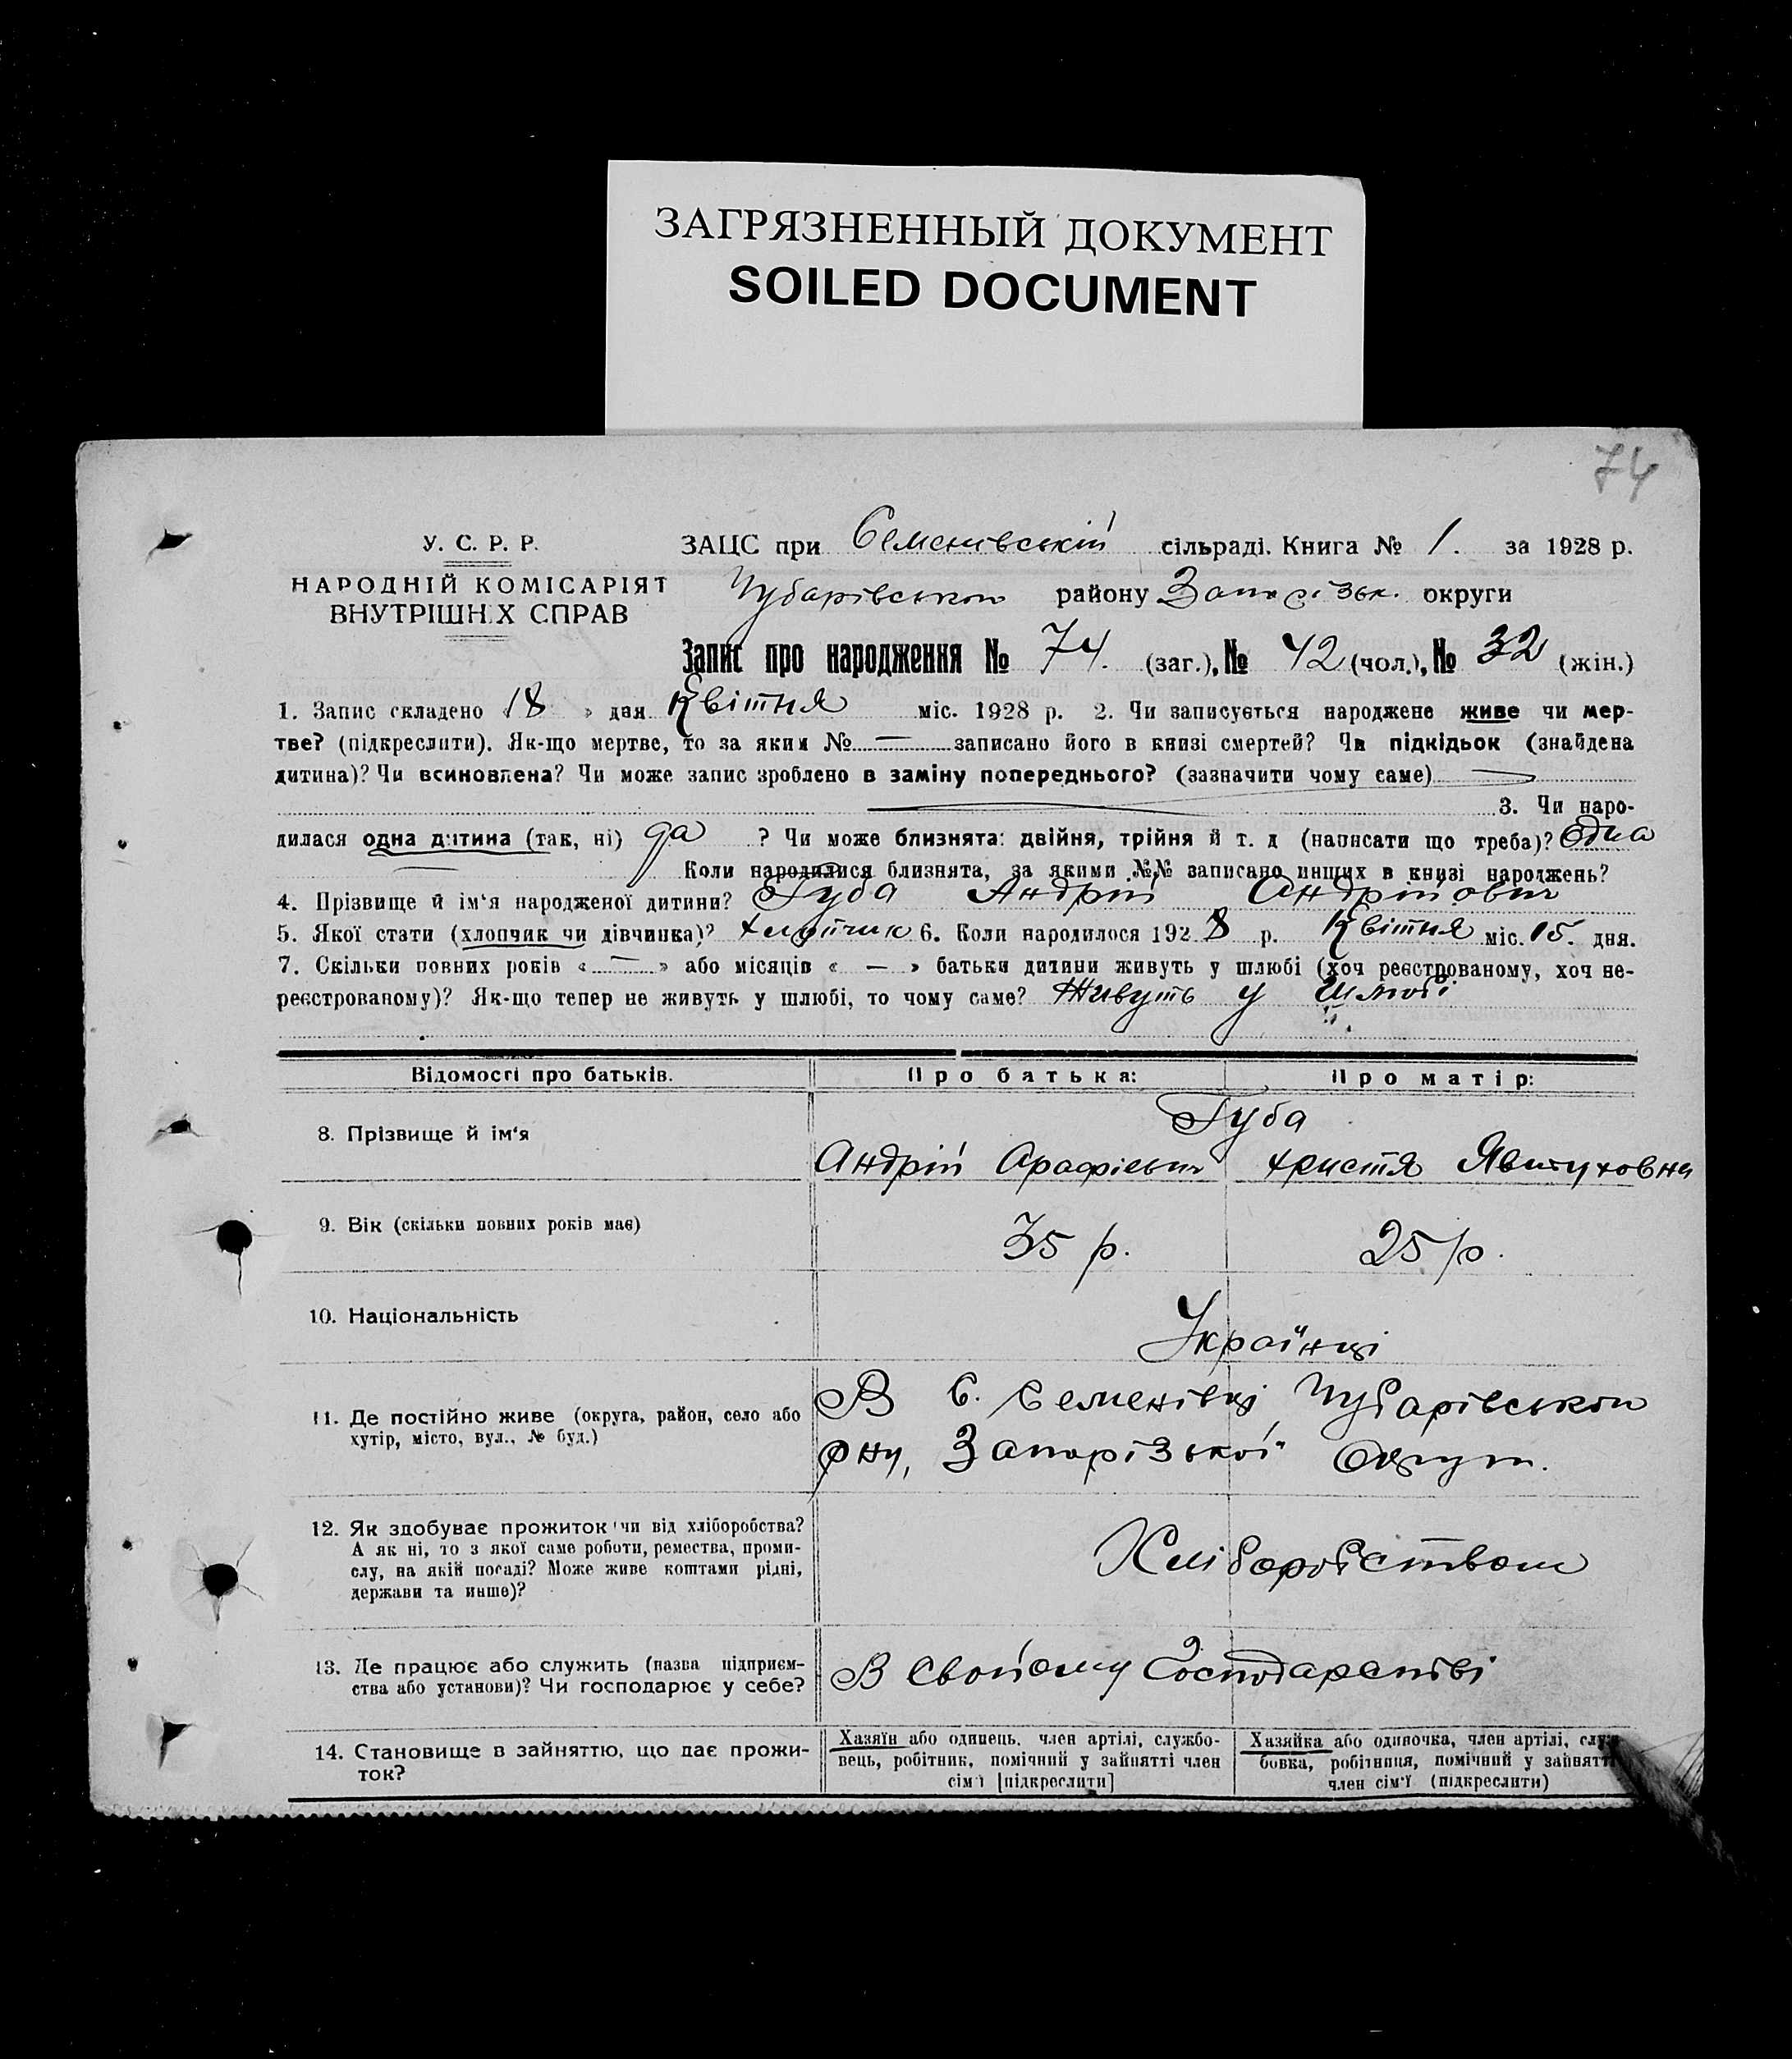 ЗАГРЯЗНЕННЫЙ ДОКУМЕНТ
SOILED DOCUMENT
74
У. С. Р. Р.
НАРОДНІЙ КОМІСАРІЯТ
ВНУТРІШН.Х СПРАВ
ЗАЦС при Семенівській сільраді. Книга № 1. за 1928 р.
Чубарівськом району Запорізьк. округи
Запис про народження № 74. (заг.), № 42 (чол.), № 32 (жін.)
1. Запис складено « 18 » дня Квітня міс. 1928 р. 2. Чи записується народжене живе чи мер-
тве? (підкреслити). Як-що мертве, то за яким № — записано його в книзі смертей? Чи підкідьок (знайдена
дитина)? Чи всиновлена? Чи може запис зроблено в заміну попереднього? (зазначити чому саме)
3. Чи наро-
дилася одна дитина (так, ні) да ? Чи може близнята: двійня, трійня й т. д (написати що треба)? Одна
Коли народилися близнята, за якими №№ записано инших в книзі народжень?
4. Прізвище й ім'я народженої дитини? Губа Андрій Андрійович
5. Якої стати (хлопчик чи дівчинка)? хлопчик 6. Коли народилося 1928 р. Квітня міс. 15. дня.
7. Скільки повних років « — » або місяців « — » батьки дитини живуть у шлюбі (хоч реєстрованому, хоч не-
реєстрованому)? Як-що тепер не живуть у шлюбі, то чому саме? Живуть у шлюбі
Відомості про батьків. Про батька: Про матір:
Губа
8. Прізвище й ім'я Андрій христя
9. Вік (скільки повних років має) 35 р. 25 р.
10. Національність Українці
11. Де постійно живе (округа, район, село або
хутір, місто, вул., № буд.)
В с. Семенівці Чубарівськом
рну, Запорізької Округи.
12. Як здобуває прожиток чи від хліборобства?
А як ні, то з якої саме роботи, ремества, проми-
слу, на якій посаді? Може живе коштами рідні,
держави та инше)?
Хліборобством
13. Де працює або служить (назва підприєм-
ства або установи)? Чи господарює у себе?
В свойому Господарстві
14. Становище в зайняттю, що дає прожи-
ток?
Хазяїн або одинець, член артілі, службо-
вець, робітник, помічний у зайнятті член
сім'ї [підкреслити]
Хазяйка або одиночка, член артілі, служ
бовка, робітниця, помічний у зайнятті
член сім'ї (підкреслити)